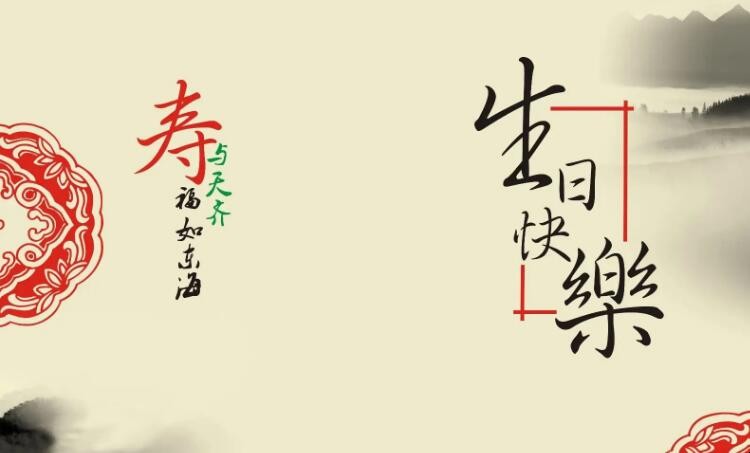 寿与天齐
福如东海
生日快樂